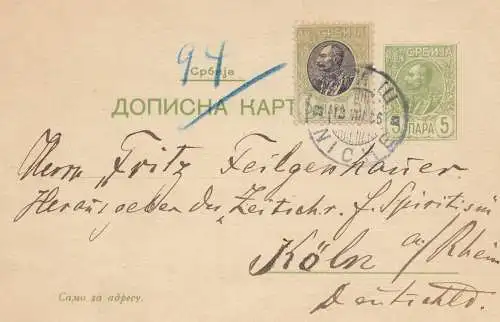 94
Србија
ДОПИСНА КАРТ
СРБИЈА
5 ПАРА 5
Herrn „Fritz Feilgenhauer.
Herausgeber der „Zeitschr. f. Spiritism
Köln a/ Rhein
Deutschld.
Само за адресу.